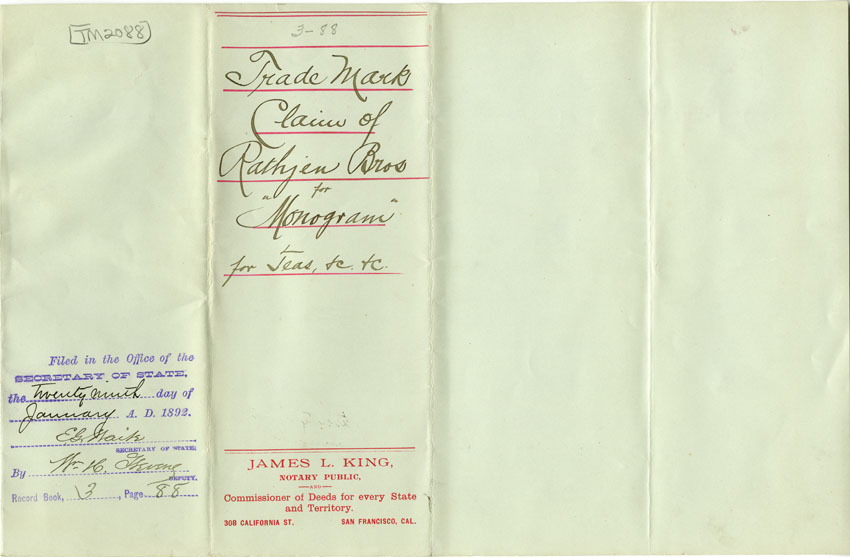 TM2088
3-88
Trade Mark
Claim of
Rathjen Bros
for
"Monogram"
for Teas, &c. &c.
Filed in the Office of the
SECRETARY OF STATE,
the twenty ninth day of
January A. D. 1892.
E.G. Waite
SECRETARY OF STATE;
By Wm H.
DEPUTY.
Record Book, 3, Page 88
JAMES L. KING,
NOTARY PUBLIC,
—AND—
Commissioner of Deeds for every State
and Territory.
308 CALIFORNIA ST. SAN FRANCISCO, CAL.